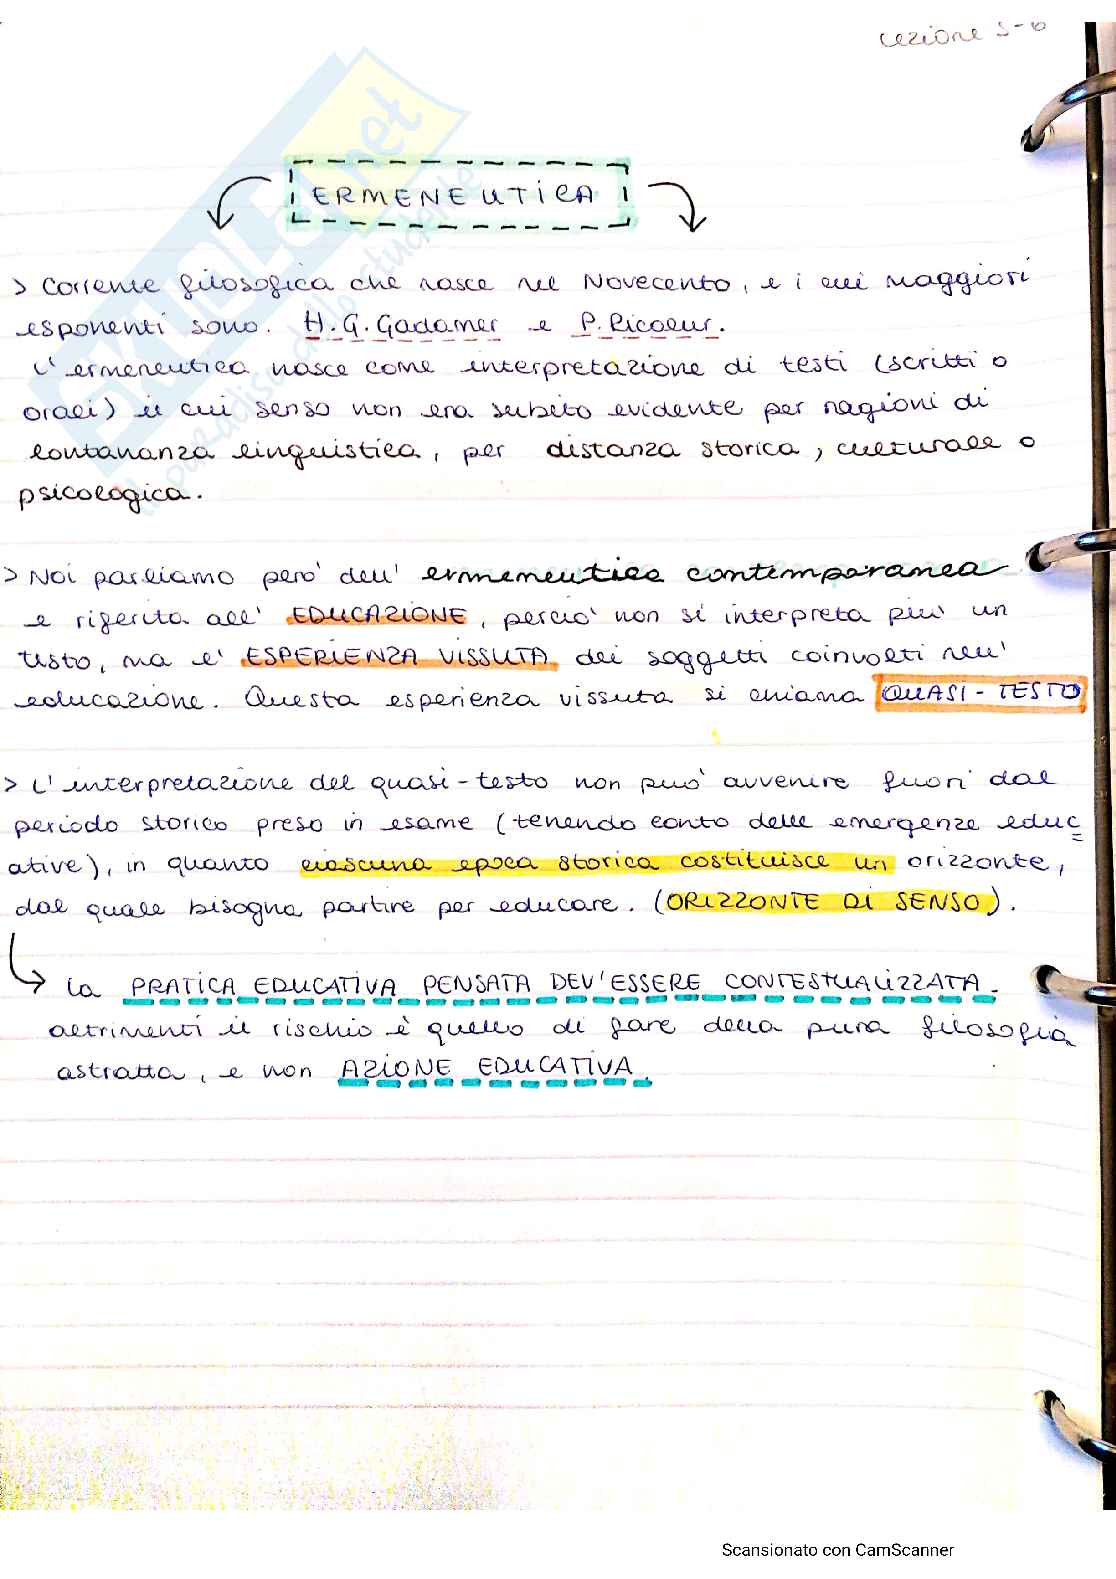 Lezione 5-6
ERMENEUTICA
> Corrente filosofica che nasce nel Novecento, e i cui maggiori
esponenti sono. H.G.Gadamer e P.Ricoeur.
L'ermeneutica nasce come interpretazione di testi (scritti o
orali) il cui senso non era subito evidente per ragioni di
lontananza linguistica, per distanza storica, culturale o
psicologica.
> Noi parliamo però dell'ermeneutica contemporanea
e riferita all'EDUCAZIONE, perciò non si interpreta più un
testo, ma l'ESPERIENZA VISSUTA dei soggetti coinvolti nell'
educazione. Questa esperienza vissuta si chiama QUASI-TESTO
> L'interpretazione del quasi-testo non può avvenire fuori dal
periodo storico preso in esame (tenendo conto delle emergenze educ
ative), in quanto ciascuna epoca storica costituisce un orizzonte,
dal quale bisogna partire per educare. (ORIZZONTE DI SENSO).
la PRATICA EDUCATIVA PENSATA DEV'ESSERE CONTESTUALIZZATA.
altrimenti il rischio è quello di fare della pura filosofia
astratta, e non AZIONE EDUCATIVA.
SKUOLA.net
il paradiso dello studente
Scansionato con CamScanner